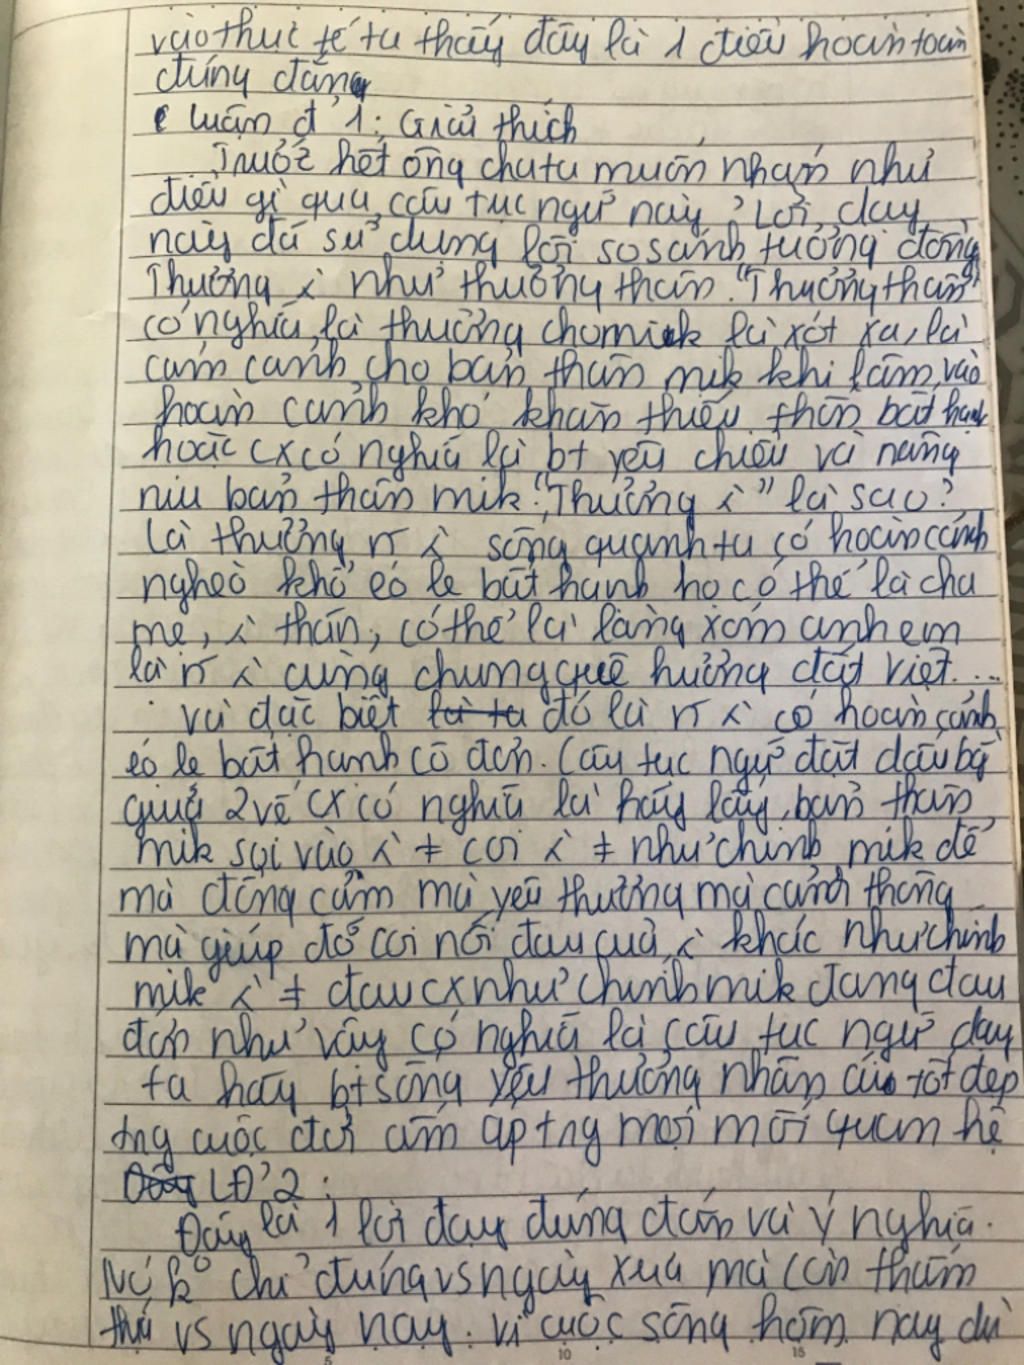 vào thực tế ta thấy đây là 1 điều hoàn toàn
đúng đắng
Luận đ' 1: Giải thích
Trước hết ông cha ta muốn nhắn như
điều gì qua câu tục ngữ này? Lời dạy
này đã sử dụng lối so sánh tương đồng
Thương λ như thương thân. "Thương thân"
có nghĩa là thương cho mik là xót xa, là
cám cảnh cho bản thân mik khi lâm vào
hoàn cảnh khó khăn thiếu thốn bất hạnh
hoặc cx có nghĩa là bt yêu chiều và nâng
niu bản thân mik. "Thương λ" là sao?
Là thương n~ λ sống quanh ta có hoàn cảnh
nghèo khổ éo le bất hạnh họ có thể là cha
mẹ, λ thân, có thể là làng xóm anh em
là n~ λ cùng chung quê hương đất việt...
và đặc biệt đó là n~ λ có hoàn cảnh
éo le bất hạnh cô đơn. Câu tục ngữ đặt dấu bg
giữa 2 vế cx có nghĩa là hãy lấy bản thân
mik soi vào λ ≠ coi λ ≠ như chính mik để
mà đồng cảm mà yêu thương mà cảm thông
mà giúp đỡ coi nỗi đau của λ khác như chính
mik λ ≠ đau cx như chính mik đang đau
đớn như vậy có nghĩa là câu tục ngữ dạy
ta hãy bt sống yêu thương nhân ái tốt đẹp
tng cuộc đời ấm áp tng mọi mối quan hệ
LĐ' 2:
Đây là 1 lời dạy đúng đắn và ý nghĩa.
Nó k° chỉ đúng vs ngày xưa mà còn thấm
thía vs ngày nay. vì cuộc sống hôm nay dù
5 10 15